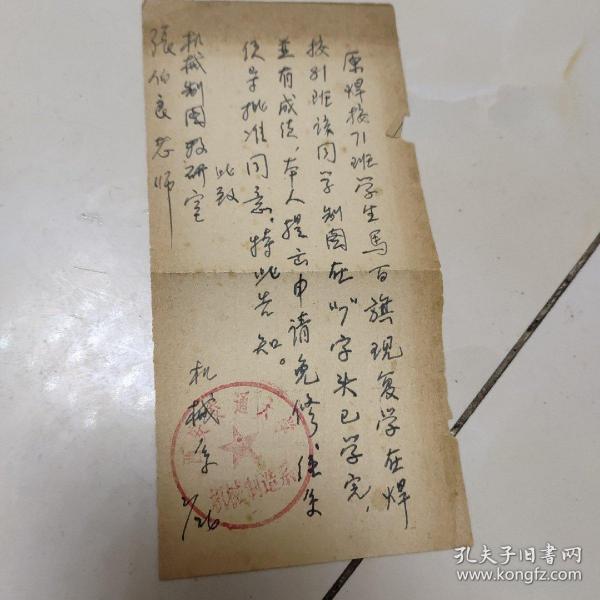 原焊接71班学生马百旗现复学在焊
接81班该同学制图在"7"字头已学完,
並有成绩,本人提出申请免修,经系
领导批准同意。特此告知。
此致
机械制图教研室
張伯良老师
机械系
2/26
交通大
机械制造系
孔夫子旧书网
www.kongfz.com